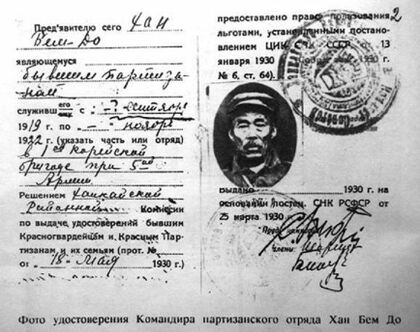 Предъявителю сего Хан
Бем-До
являющемуся
бывшим партиза-
ном
служивш его с -?- октября
1919 г. по — ноябрь
1922 г. (указать часть или отряд)
в 1ой корейской
бригаде при 5ой
Армии
Решением Ханкайской
Районной Комиссии
по выдаче удостоверений бывшим
Красногвардейцам и Красным Пар-
тизанам и их семьям (прот. №
от "18-Мая 1930 г.)
предоставлено право пользования 2
льготами, установленными постано-
влением ЦИК и СНК СССР от 13
января 1930 г. 1930 г.
№ 6, ст. 64).
Выдано 1930 г. на
основании постен. СНК РСФСР от
25 марта 1930 г.
Пред. комиссии
Члены
Фото удостоверения Командира партизанского отряда Хан Бем До